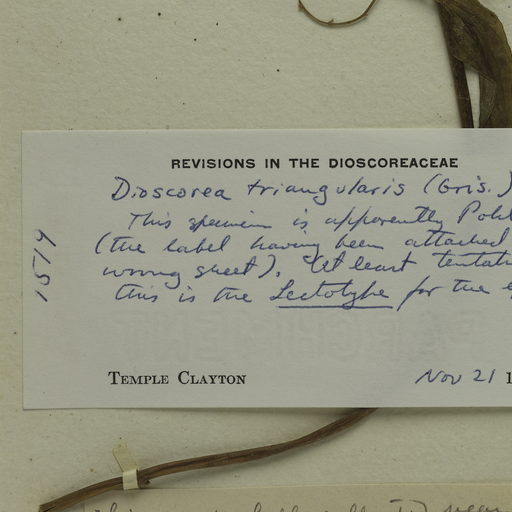 REVISIONS IN THE DIOSCOREACEAE
Dioscorea triangularis (Gris.)
This specimen is apparently Pohl
(the label having been attached
wrong sheet). At least tentati
this is the Lectotype for the
TEMPLE CLAYTON
Nov 21 1
1519